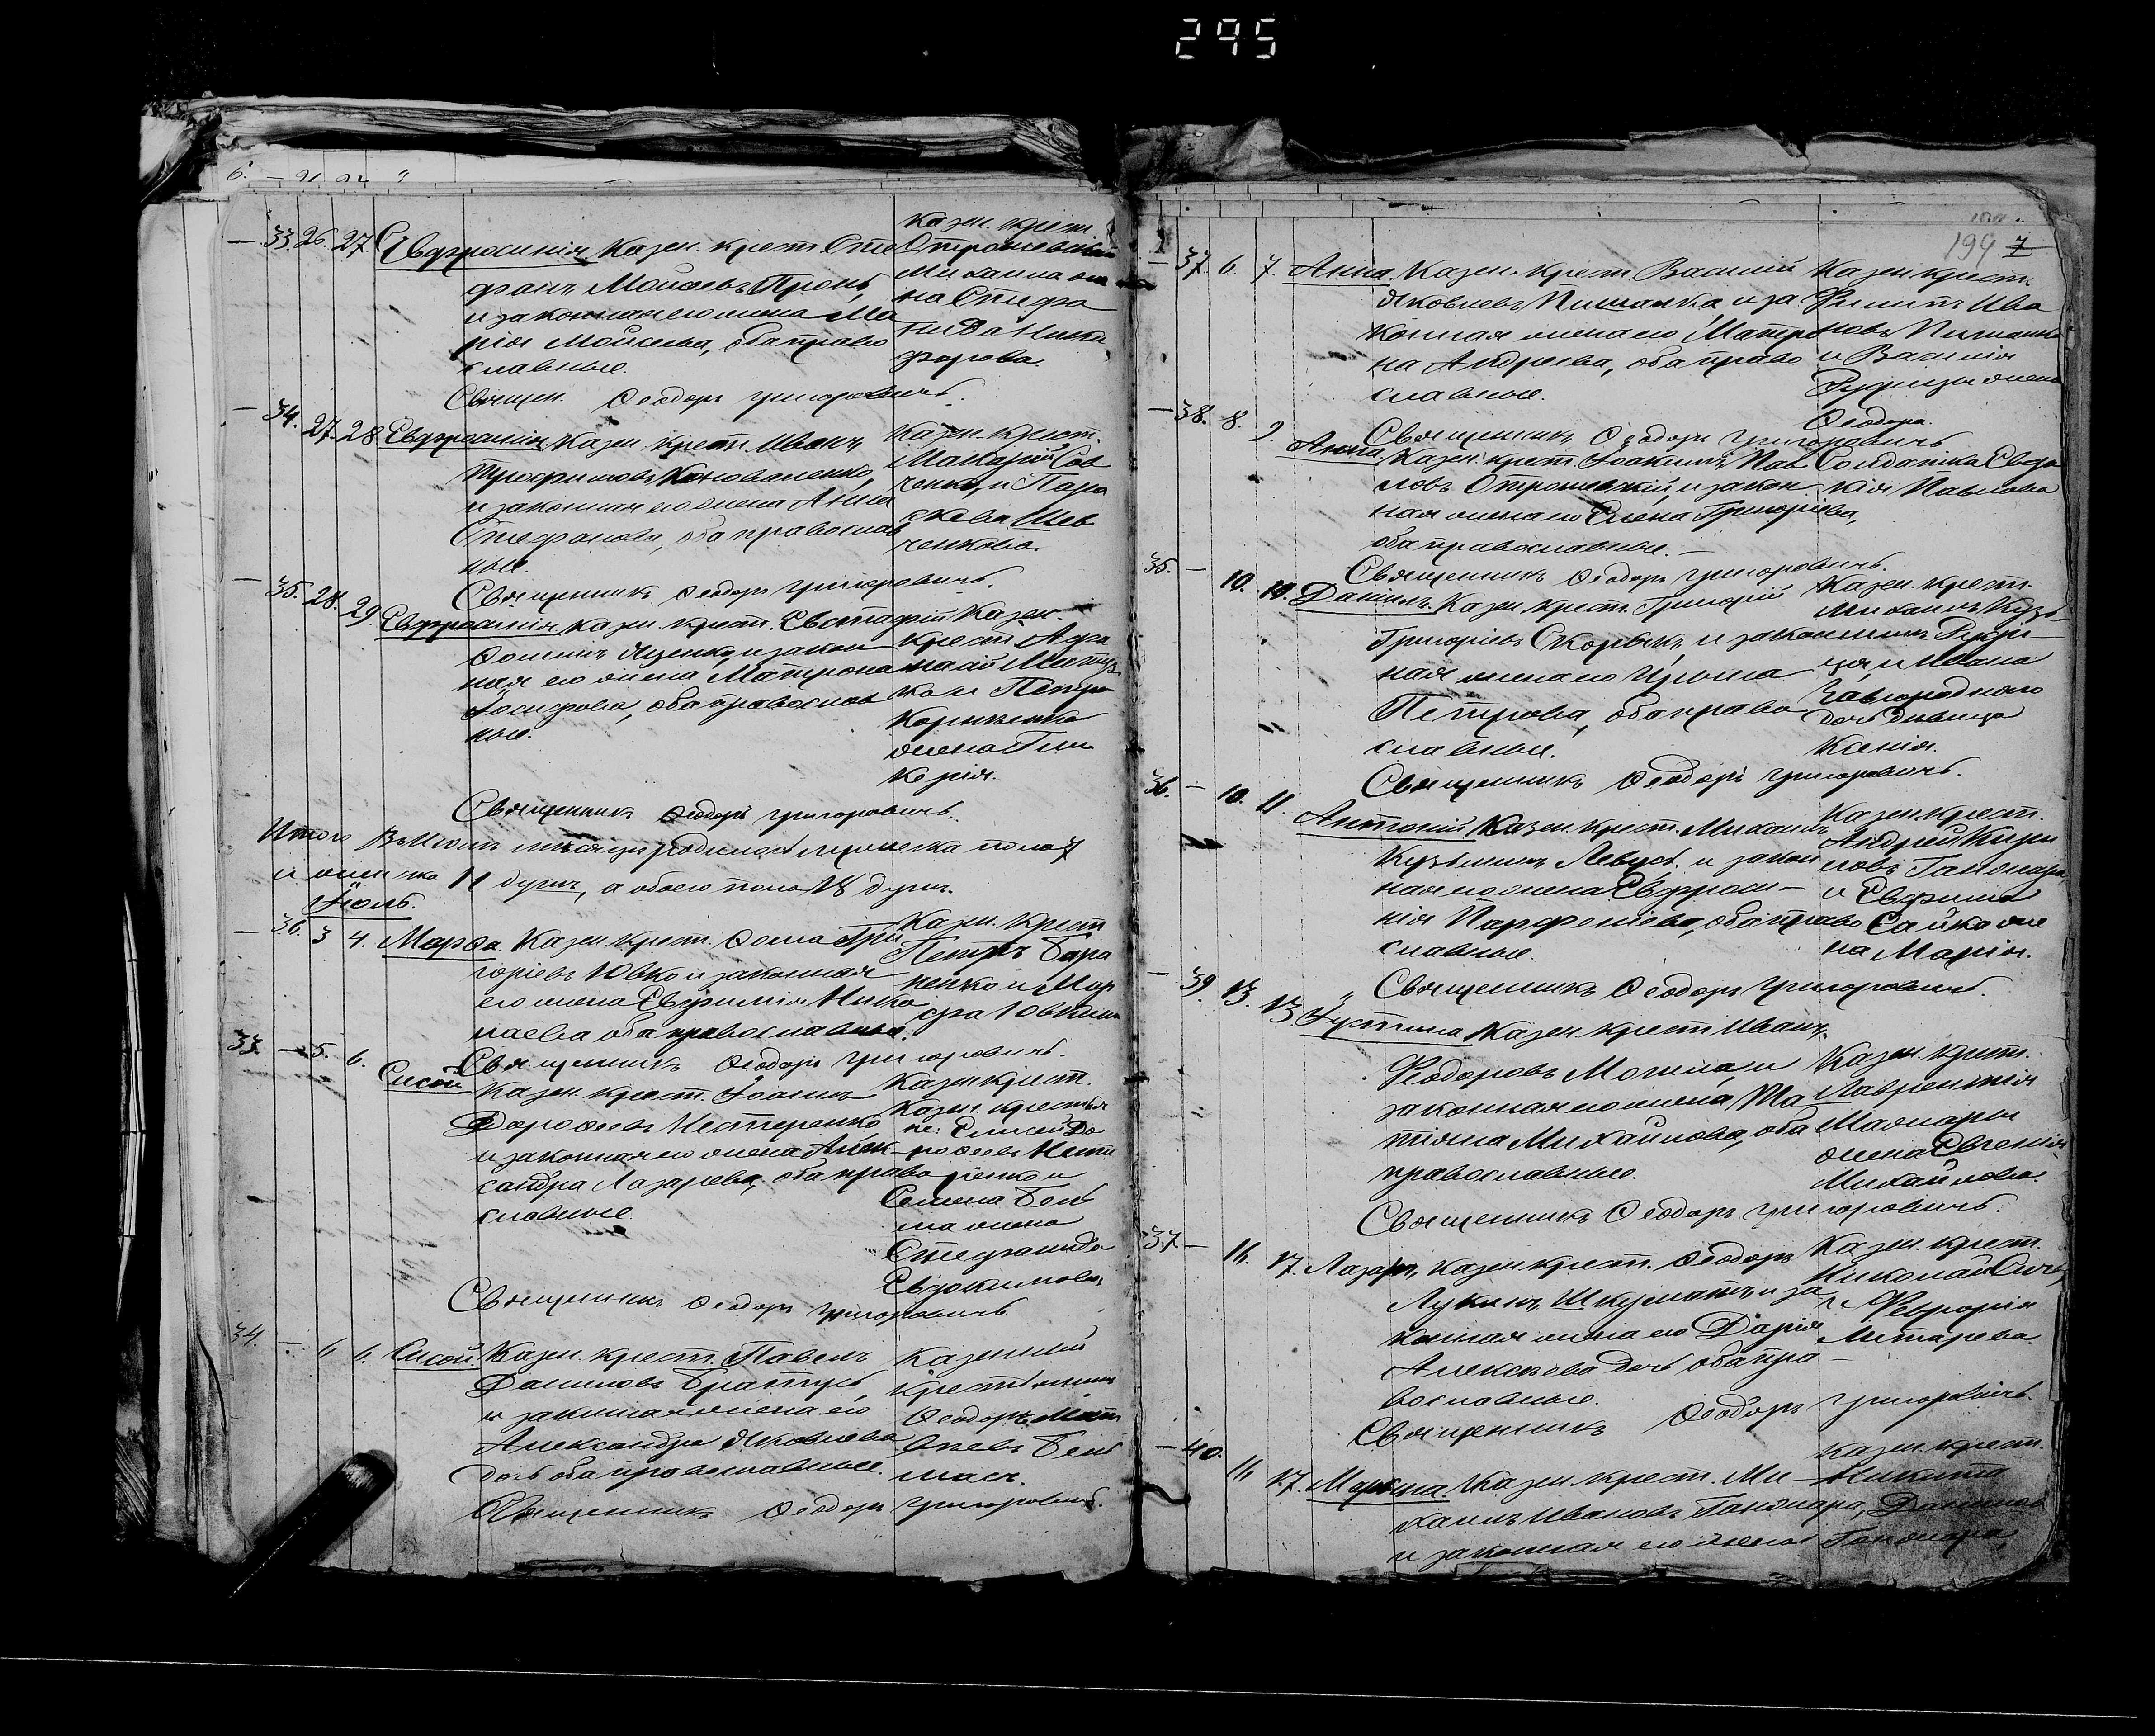 295
6.
— 33. 26. 27. Евфросинія Казен. крест. Сте
фанъ Моисеевъ Пронь,
и законная его жена Ма
рія Моисеева, оба право
славные.
Казен. крест.
Отрошевскій
Михаила же
на Стефа
нида Ники
форова.
Священ. Феодоръ Григоровичъ.
— 34. 27. 28. Евфросинія Казен. крест. Иванъ
Трофимовъ Коноваленко,
и законная его жена Анна
Стефанова, оба православ
ные.
Казен. крест.
Макарій Сав
ченко, и Пара
скева Шев
ченкова.
Священникъ Феодоръ Григоровичъ.
— 35. 28. 29. Евфросинія Казен. крест. Евстафій
Фоминъ Яценко, и закон
ная его жена Матрона
Іосифова, оба православ
ные.
Казен.
крест. Афа
насій
и Петра
жена Гли
керія.
Священникъ Феодоръ Григоровичъ.
Итого Въ Июнѣ мѣсяцѣ родилось мужеска пола 7
и женска 11 душъ, а обоего пола 18 душъ.
Іюль.
— 36. 3 4. Марфа. Казен. крест. Фома Гри
горіевъ Ювко и законная
его жена Евфимія Нико
лаева оба православные.
Казен. крест.
Петръ Бара
ненко и Мар
фа
Священникъ Феодоръ Григоровичъ.
33. — 5. 6. Сисой
Казен. крест. Іоаннъ
Дорофеевъ Нестеренко
и законная его жена Алек
сандра Лазарева, оба право
славные.
Казен. крест.
Казен. крестья
не: Елисей До
рофеевъ Несте
ренко и
Семена
жена
Стефанида
Евдокимова
Священникъ Феодоръ Григоровичъ
34. — 6 6. Сисой. Казен. крест. Павелъ
Даниловъ
и законная жена его
Александра Яковлева
дочь оба православные.
Казенный
крестьянинъ
Феодоръ
Священникъ Феодоръ Григоровичъ.
199 7
— 37. 6. 7. Анна. Казен. крест. Василій
Яковлевъ и за
конная жена его Матро
на Андреева, оба право
славные.
Казен. крест.
Филипъ Ива
новъ
и Василія
жена
Феодора.
Священникъ Феодоръ Григоровичъ
— 38. 8. 9. Анна. Казен. крест. Іоакимъ Пав
ловъ Отрошевскій, и закон
ная жена его Елена Григоріева,
оба православные. —
Солдатка Евдо
кія Павлова
Священникъ Феодоръ Григоровичъ.
35. — 10. 10. Даниилъ. Казен. крест. Григорій
Григоріевъ и закон
ная жена его
Петрова, оба право
славные.
Казен. крест.
Михаилъ Кузь
и Ивана
Завгородного
дочь дѣвица
Ксенія.
Священникъ Феодоръ Григоровичъ.
36. — 10. 11. Антоній Казен. крест. Михаилъ
Кузьминъ и закон
ная его жена Евфроси—
нія Парфеніева, оба право
славные.
Казен. крест.
Андрей Кирил
ловъ Ганжара,
и Евфима
Сайка же
на Марія.
Священникъ Феодоръ Григоровичъ.
— 39. 13. 13 Іустина Казен. крест. Иванъ
Феодоровъ Могила, и
законная его жена Та
тіяна Михайлова, оба
православные.
Казен. крест.
Лаврентія
жена Евгенія
Михайлова.
Священникъ Феодоръ Григоровичъ.
37. — 16. 17. Лазарь, Казен. крест. Феодоръ
Лукинъ и за
конная жена его Дарія
Алексѣева дочь оба пра—
вославные.
Казен. крест.
Николай
и Февронія
Священникъ Феодоръ Григоровичъ.
— 40. 16 17. Марина. Казен. крест. Ми—
хаилъ Ивановъ Ганжара,
и законная его жена
Казен. крест.
Никита
Даниловъ
Ганжара,